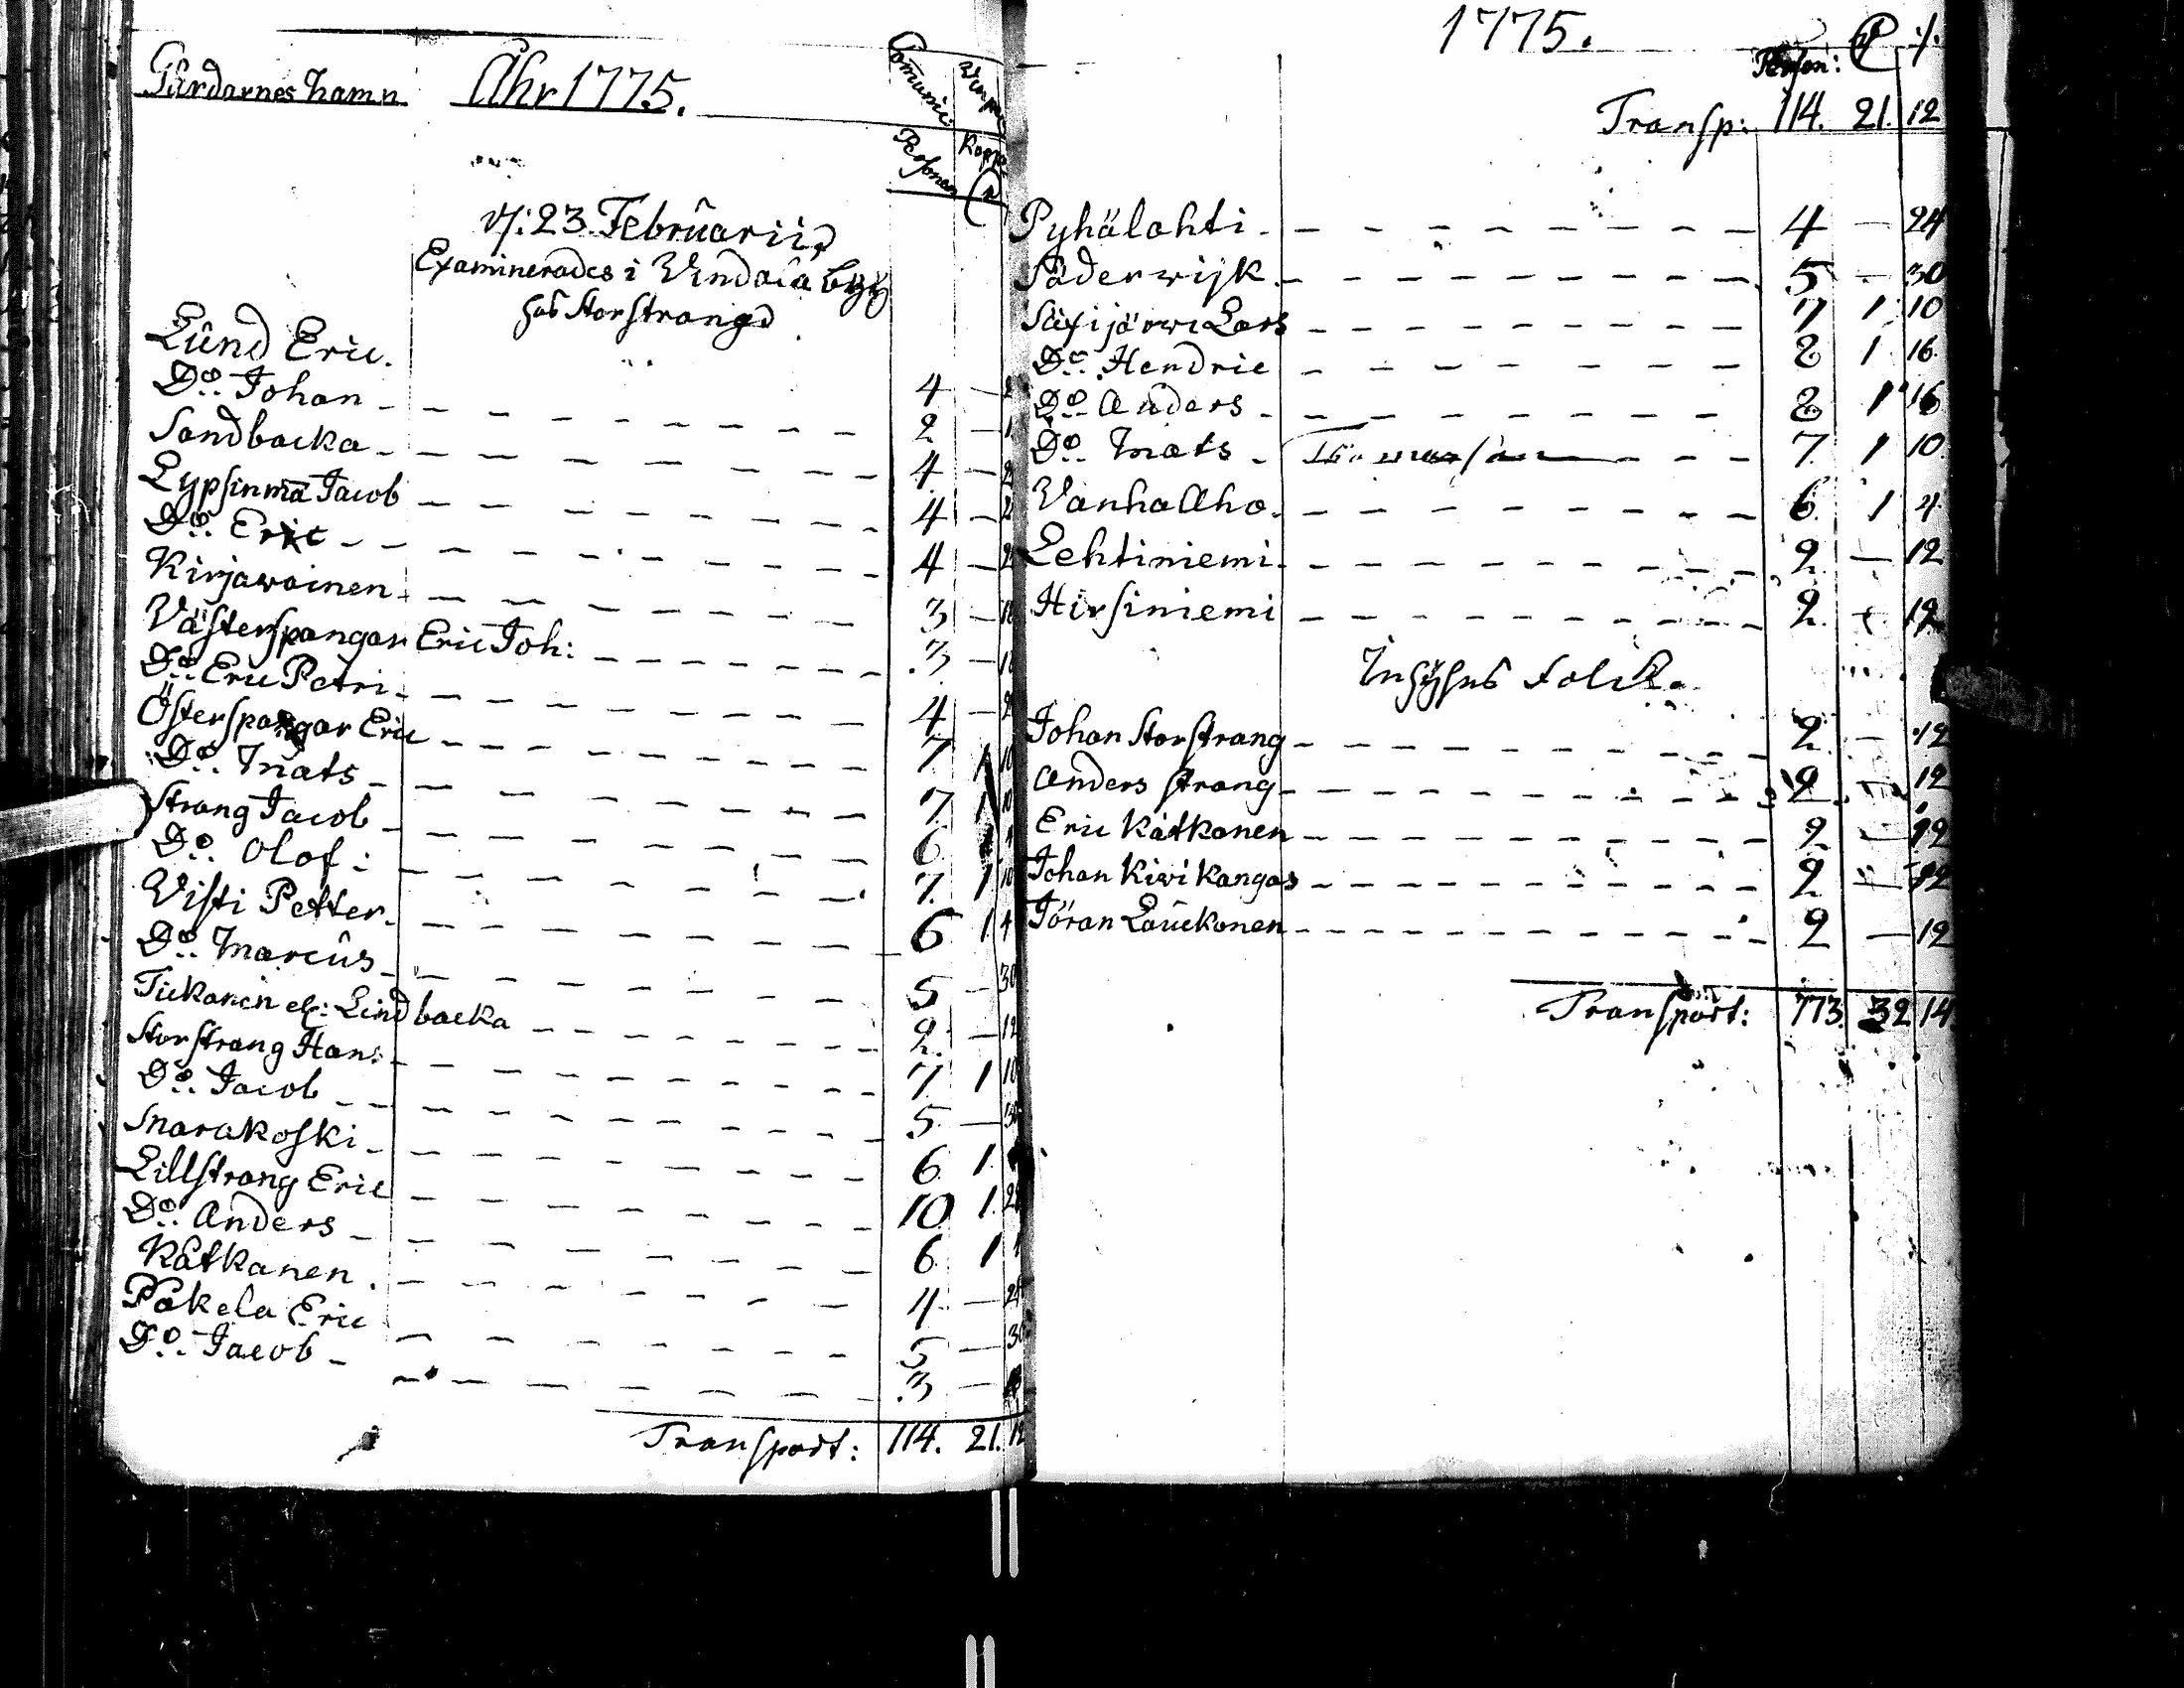 Gårdarnes namn Åhr 1775. Communic: Personer Kopp:
d: 23. Februarii
Examinerades i Vindala by
hos Storstrang
Lund Eric.
D:o Johan 4 —
Sandbacka 2 —
Lypsinmä Jacob 4 —
D:o Eric 4 —
Kirjawainen 4 —
Västerspangar Eric Joh: 3 —
D:o Eric Petri 3 —
Österspangar Eric 4 —
D:o Mats 7 1 10
Strang Jacob 7 1 10
D:o Olof: 6 1
Visti Petter 7 1 10
D:o Marcus 6 1 4
Tiikanen el: Lindbacka 5 — 30
Storstrang Hans 2 — 12
D:o Jacob 7 1 10
Marakoski 5 —
Lillstrang Eric 6 1
D:o Anders 10 1
Kätkanen 6 1
Påkela Eric 4 —
D:o Jacob 5 — 30
3 —
Transport: 114. 21. 12
1775.
Person:
Transp: 114. 21. 12
Pyhälahti 4 — 24
Söderwijk 5 — 30
Säxijärwi Lars 7 1 10
D:o Hendric 8 1 16
D:o Anders 8 1 16
D:o Mats Thomasson 7 1 10
Vanha Aho 6 1 4
Lehtiniemi 2 — 12
Hirsiniemi 2 — 12
Inhyses Folck
Johan Storstrang 2 — 12
Anders Strang 2 — 12
Eric Kätkanen 2 — 12
Johan Kiwikangas 2 — 12
Jöran Lauckonen 2 — 12
Transport: 173. 32 14